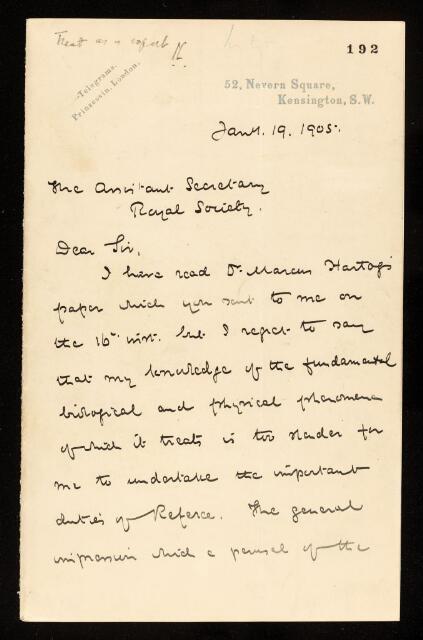 Treat as a report
192
Telegrams.
Prinsessin, London.
52, Nevern Square,
Kensington, S.W.
Jany. 19. 1905.
The Assistant Secretary
Royal Society.
Dear Sir,
I have read Dr. Marcus Hartog's
paper which you sent to me on
the 16th inst. but I regret to say
that my knowledge of the fundamental
biological and physical phenomena
of which it treats is too slender for
me to undertake the important
duties of Referee. The general
impression which a perusal of the